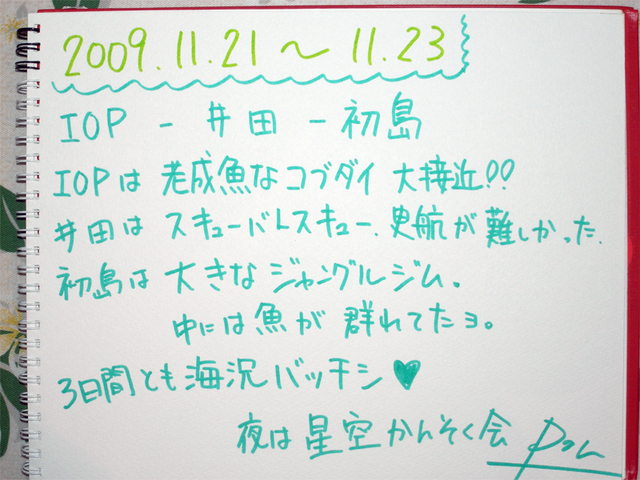 2009.11.21 〜 11.23
IOP - 井田 - 初島
IOPは 老成魚なコブダイ 大接近!!
井田は スキューバレスキュー. 曳航が 難しかった.
初島は 大きな ジャングルジム.
中には 魚が 群れてたョ。
3日間とも 海況 バッチシ ♥
夜は 星空 かんそく会